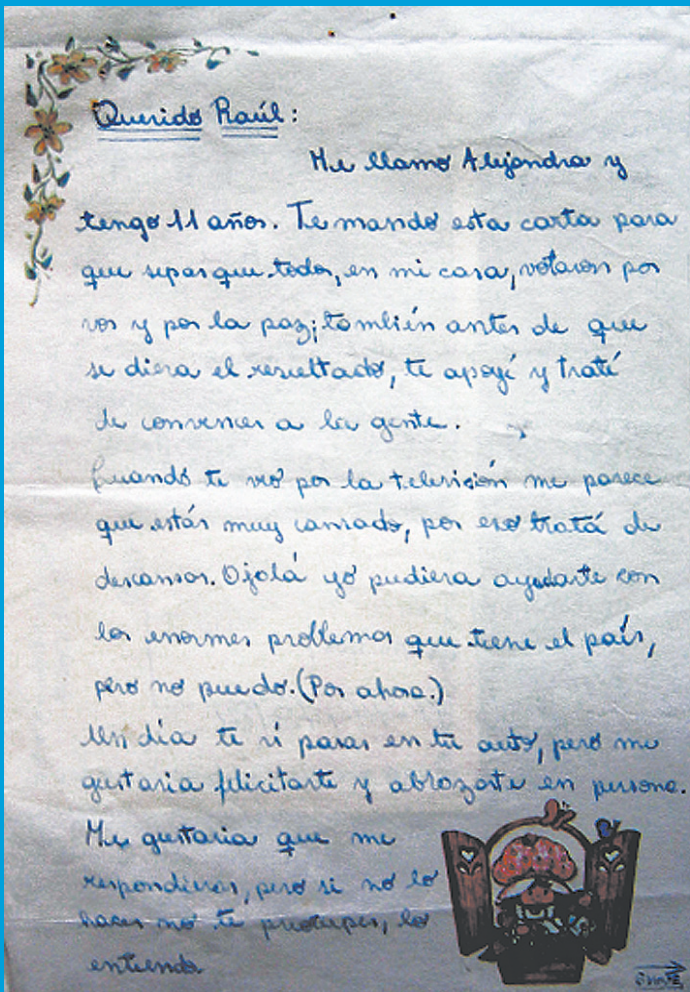 Querido Raúl:
Me llamo Alejandra y
tengo 11 años. Te mando esta carta para
que sepas que todos, en mi casa, votaron por
vos y por la paz; también antes de que
se diera el resultado, te apoyé y traté
de convencer a la gente.
Cuando te veo por la televisión me parece
que estás muy cansado, por eso tratá de
descansar. Ojalá yo pudiera ayudarte con
los enormes problemas que tiene el país,
pero no puedo. (Por ahora.)
Un día te vi pasar en tu auto, pero me
gustaría felicitarte y abrazarte en persona.
Me gustaría que me
respondieras, pero si no lo
haces no te preocupes, lo
entiendo.